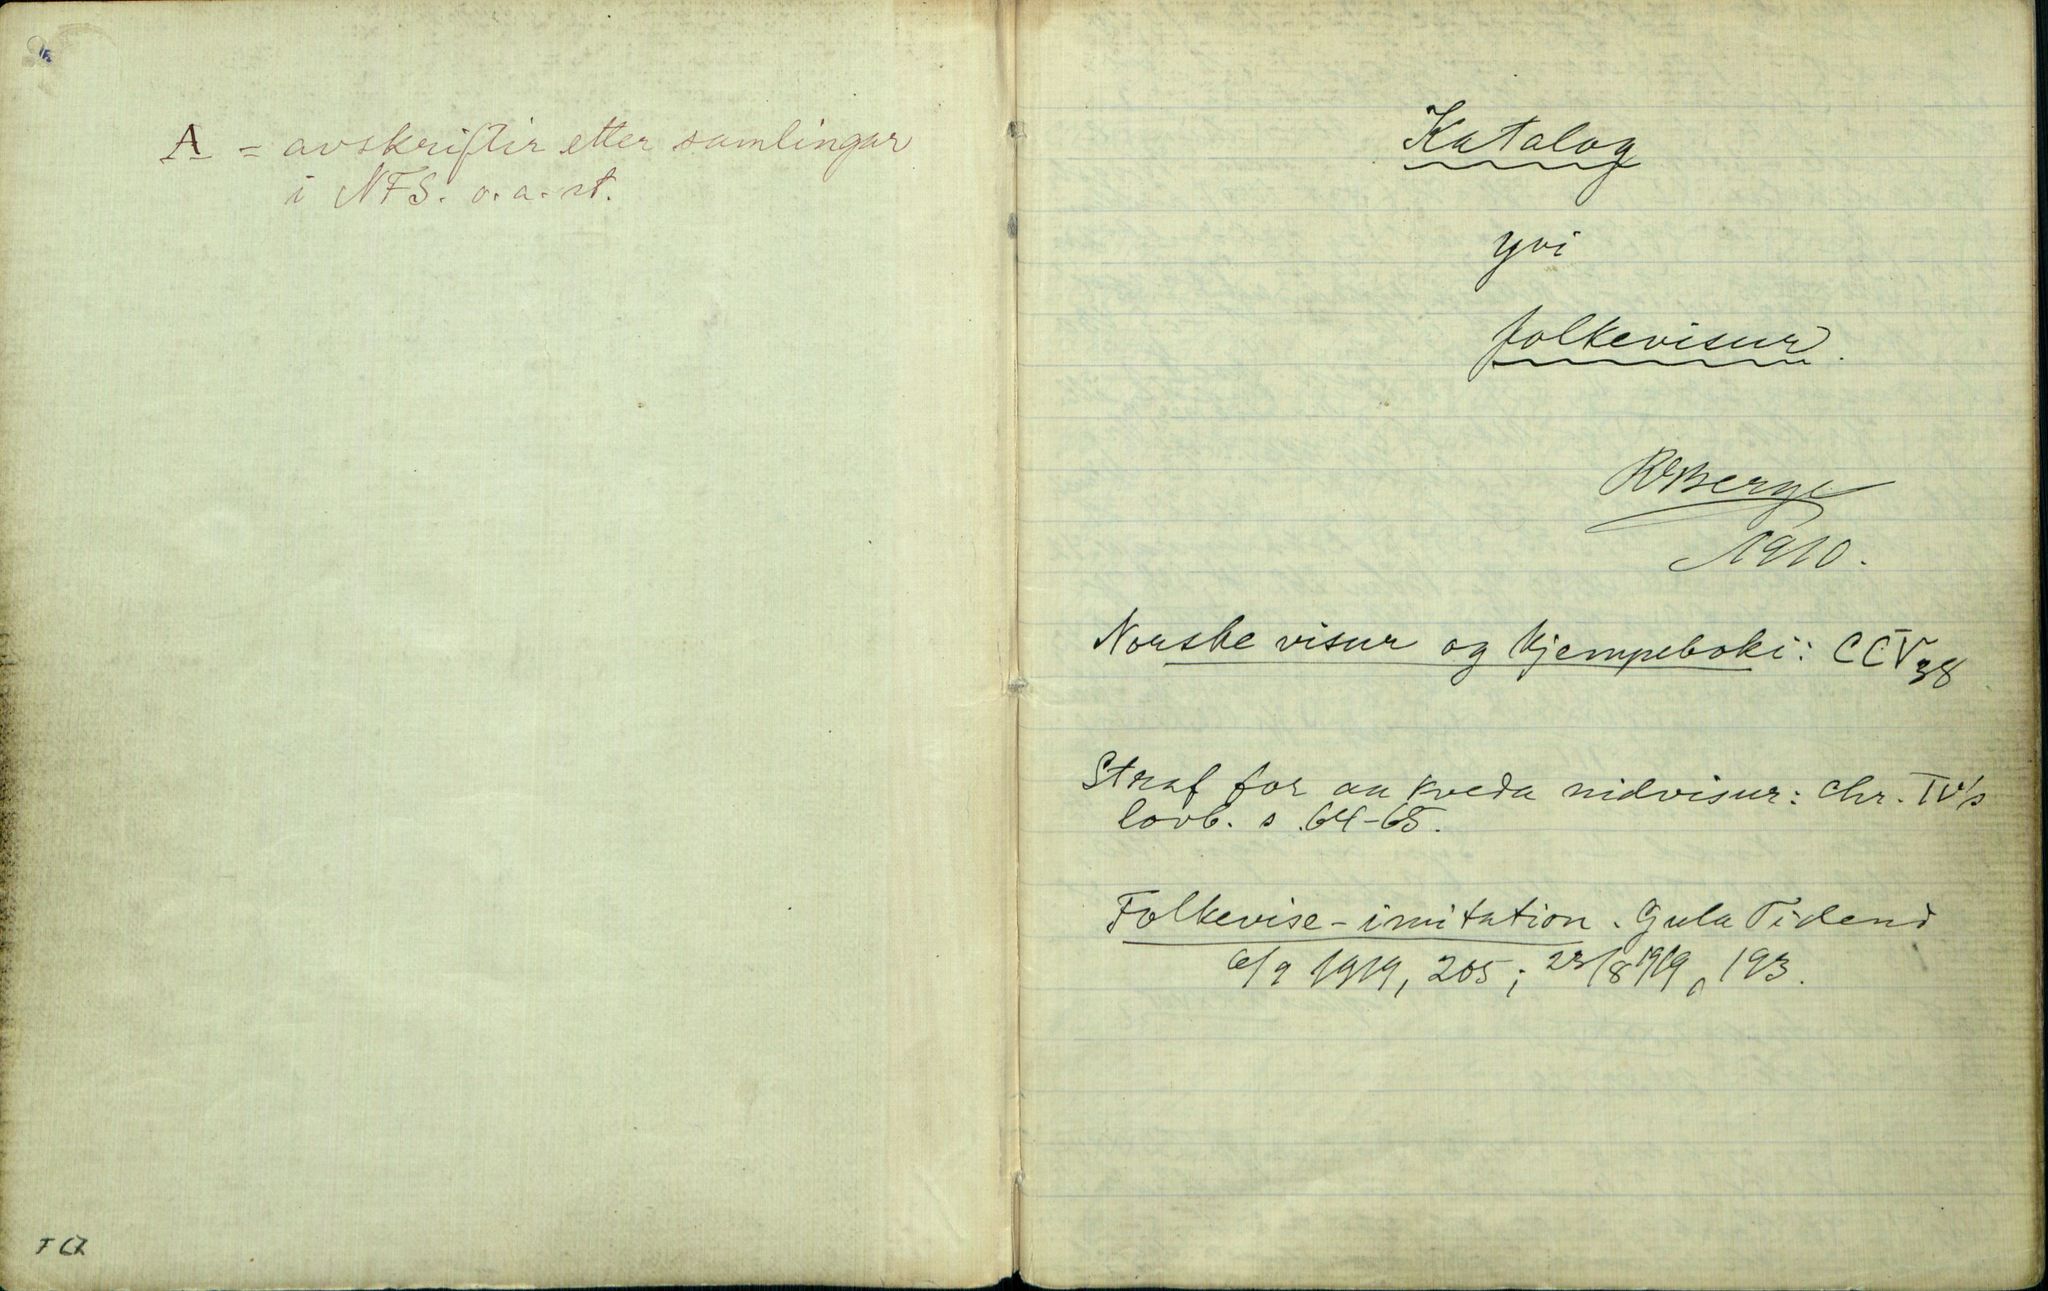 A = avskriftir etter samlingar
i NFS. o. a. st.
Katalog
yvi
folkevisur.
RBerge
1910.
Norske visur og Kjempeboki: CCV 38
Straf for aa kveda nidvisur: Chr. IV's
lovb. s. 64-65.
Folkevise-imitation. Gula Tidend
6/9 1919, 205; 23/8 1919, 193.